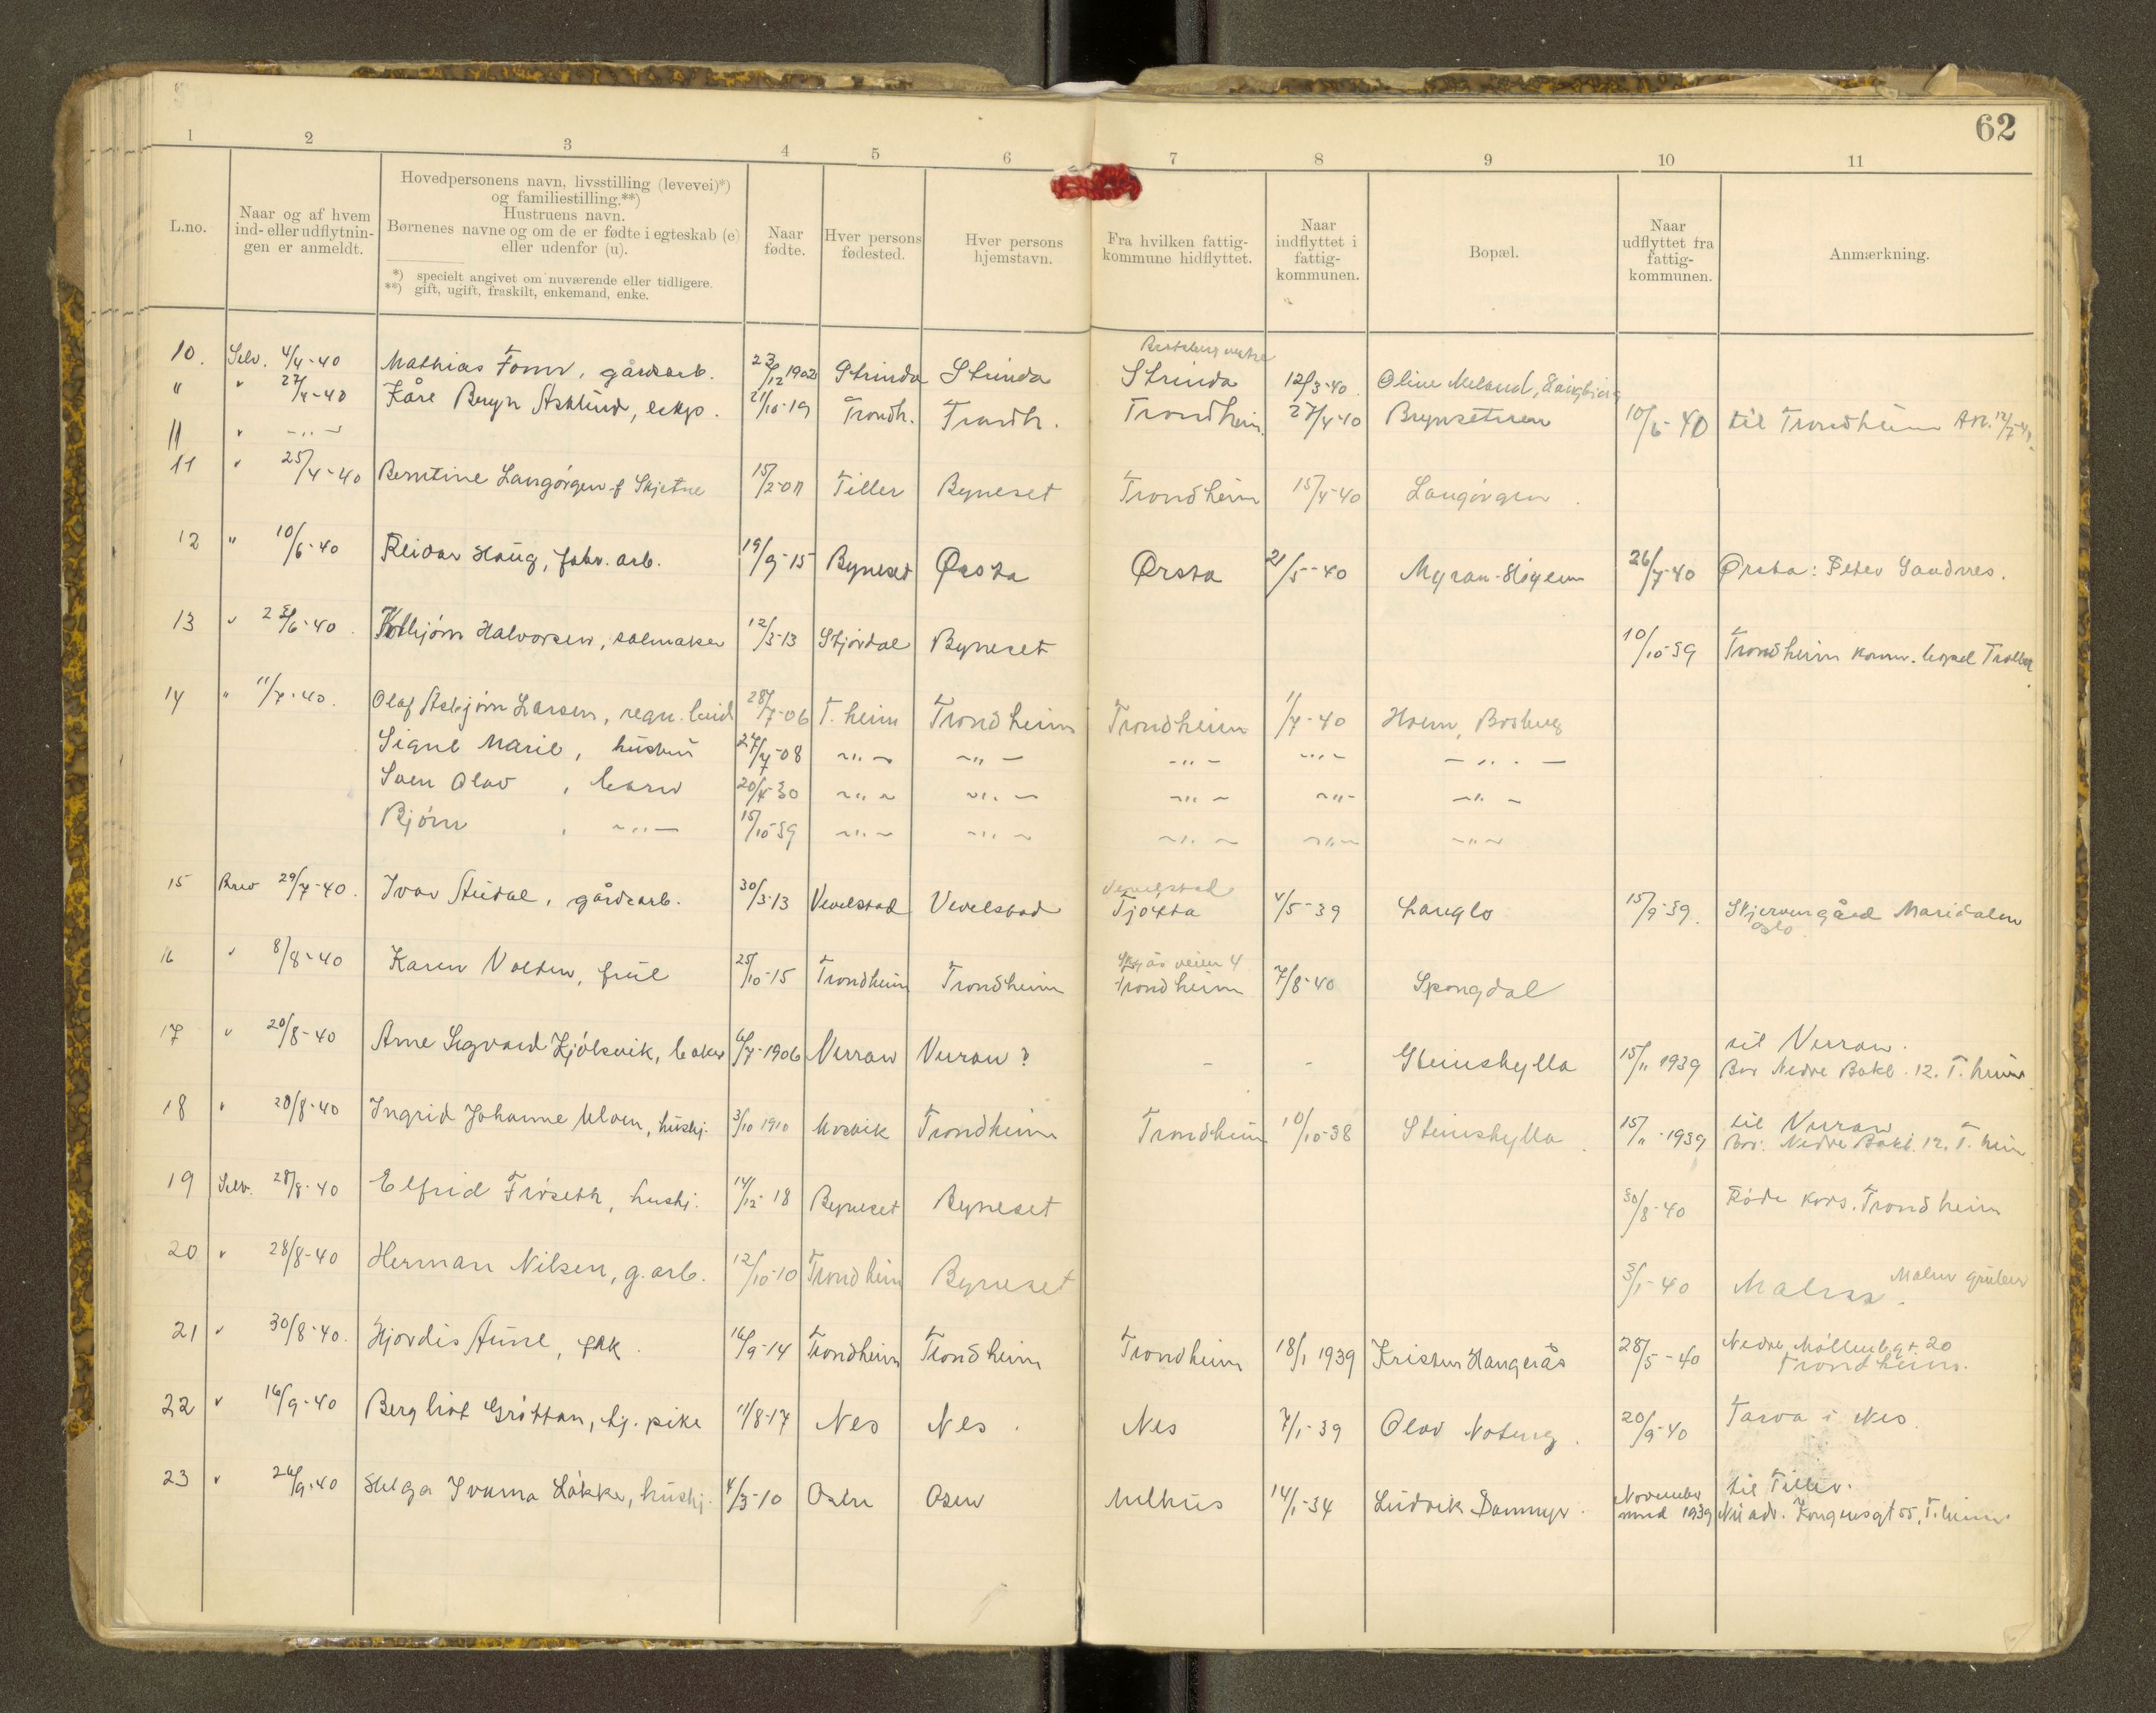 62
1 2 3 4 5 6 7 8 9 10 11
L.no.
Naar og af hvem
ind- eller udflytnin-
gen er anmeldt.
Hovedpersonens navn, livsstilling (levevei)*)
og familiestilling.**)
Hustruens navn.
Børnenes navne og om de er fødte i egteskab (e)
eller udenfor (u).
*) specielt angivet om nuværende eller tidligere.
**) gift, ugift, fraskilt, enkemand, enke.
Naar
fødte.
Hver persons
fødested.
Hver persons
hjemstavn.
Fra hvilken fattig-
kommune hidflyttet.
Naar
indflyttet i
fattig-
kommunen.
Bopæl.
Naar
udflyttet fra
fattig-
kommunen.
Anmærkning.
10. Selv. 4/4-40 Mathias Foms, gårdsarb. 23/12 1902 Strinda Strinda Strinda 12/3-40 Oline Meland
" " 27/4-40 Kåre Asklund, 21/10-19 Trondh. Trondh. Trondheim 27/4-40 Brynseteren 10/6-40 til Trondheim
11 " -"-
11 " 25/4-40 Berntine Langørgen f Skjetne 15/2-07 Tiller Byneset Trondheim 15/4-40 Langørgen
12 " 10/6-40 Reidar Haug, fabr. arb. 19/9-15 Byneset Ørsta Ørsta 21/5-40 Myran-Høyem 26/7-40 Ørsta: Peter Sandnes.
13 " 25/6-40 Kolbjørn Halvorsen, salmaker 12/3-13 Stjørdal Byneset 10/10-39 Trondheim komm. bopel
14 " 11/7-40. Olaf Asbjørn Larsen, regn. 28/7-06 T.heim Trondheim Trondheim 1/7-40 Holm, Bosberg
Signe Marie, hustru 27/7-08 -"- -"- -"- -"- -"-
Sven Olav, barn 20/4-30 -"- -"- -"- -"- -"-
Bjørn, -"- 15/10-39 -"- -"- -"- -"- -"-
Vevelstad
15 Brev 29/7-40. Ivar Studal, gårdsarb. 30/3-13 Vevelstad Vevelstad Tjøtta 4/5-39 Langlo 15/9-39. Skjervengård Maridalen
Oslo
veien 4
16 " 8/8-40 Karen Volden, frue 25/10-15 Trondheim Trondheim Trondheim 7/8-40 Spongdal
til Verran.
17 " 20/8-40 Arne Sigvard Kjølsvik, baker 6/7-1906 Verran Verran? - - Steinshylla 15/11 1939 Bor Nedre Bakl. 12. T.heim
til Verran
18 " 20/8-40 Ingrid Johanne Moen, hushj. 3/10 1910 Mosvik Trondheim Trondheim 10/10-38 Steinshylla 15/11-1939 Bor: Nedre Bakl. 12. T.heim
19 Selv. 28/8-40 Elfrid Frøseth, hushj. 14/12-18 Byneset Byneset 30/8-40 Røde kors. Trondheim
20 " 28/8-40 Herman Nilsen, g. arb. 12/10-10 Trondheim Byneset 3/1-40 Malm. Malm gruber
21 " 30/8-40. Hjørdis Aune, frk. 16/9-14 Trondheim Trondheim Trondheim 18/1 1939 Kristen Haugerås 28/5-40 Nedre Møllenbgt 20
Trondheim.
22 " 16/9-40 Bergliot Grøttan, hj. pike 11/8-17 Nes Nes. Nes 7/1-39 Olav Noteng. 20/9-40 Tarva i Nes.
til Tiller.
23 " 26/9-40 Helga Ivarna Løkke, hushj. 4/3-10 Osen Osen Melhus 14/1-34 Ludvik Dammyr. November
mnd 1939 Nu adr. Kongensgt 55, T.heim.